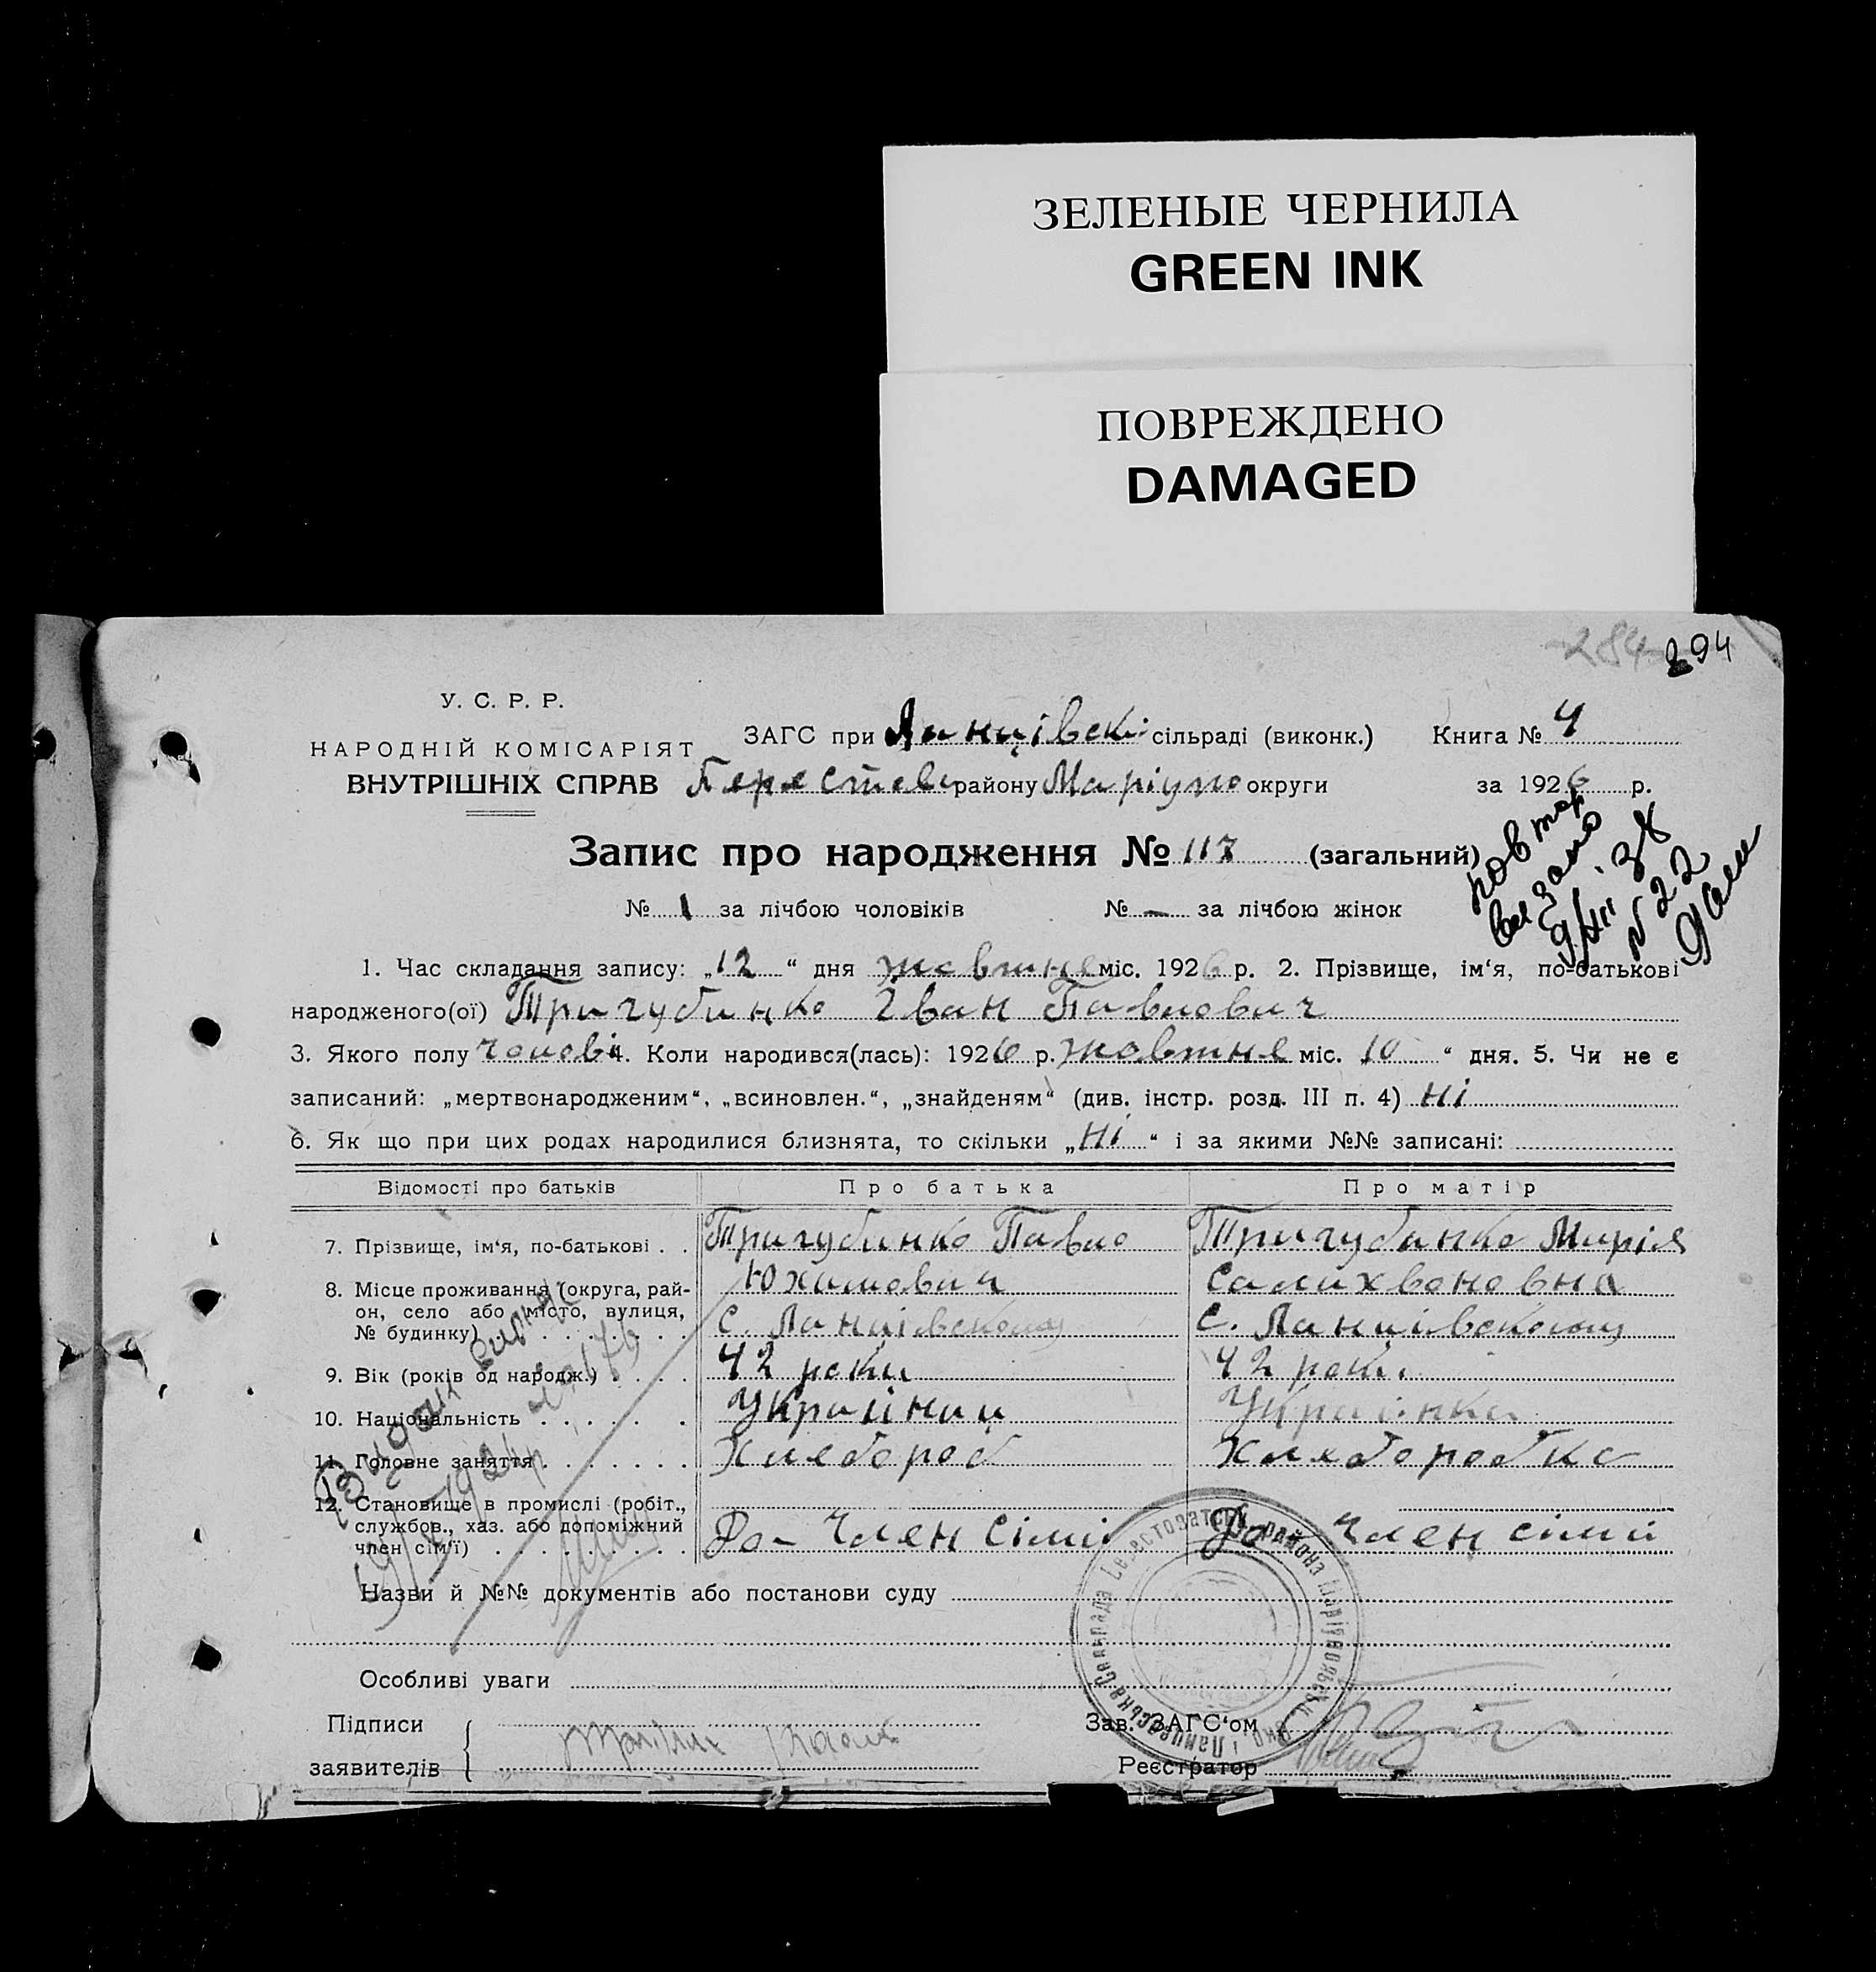 ЗЕЛЕНЫЕ ЧЕРНИЛА
GREEN INK
ПОВРЕЖДЕНО
DAMAGED
284 294
У. С. Р. Р.
НАРОДНІЙ КОМІСАРІЯТ
ВНУТРІШНІХ СПРАВ
ЗАГС при Ланцівскі сільраді (виконк.) Книга № 4
Берестові району Маріупо округи за 1926 р.
Запис про народження № 117 (загальний)
повтор
вызано
9/III 38
N 22
№ 1 за лічбою чоловіків № — за лічбою жінок
1. Час складання запису: „12“ дня жовтня міс. 1926 р. 2. Прізвище, ім‘я, по-батькові
народженого(ої) Тригубинко Іван Павлович
3. Якого полу чолові 4. Коли народився(лась): 1926 р. жовтня міс. 10 “ дня. 5. Чи не є
записаний: „мертвонародженим“, „всиновлен.“, „знайденям“ (див. інстр. розд. III п. 4) Ні
6. Як що при цих родах народилися близнята, то скільки „Ні“ і за якими №№ записані:
Відомості про батьків Про батька Про матір
7. Прізвище, ім‘я, по-батькові . . Тригубинко Павло Тригубинко Марія
Юхимович Салихвоновна
8. Місце проживання (округа, рай-
он, село або місто, вулиця,
№ будинку) С. Ланцівскому С. Ланцівскому
9. Вік (років од народж.) 42 роки 42 роки
10. Національність Україниц Українка
11. Головне заняття Хлебороб Хлеборобка
12. Становище в промислі (робіт.,
службов., хаз. або допоміжний
член сім‘ї) До- Член Сімії До- Член сімії
Видан
Назви й №№ документів або постанови суду
Особливі уваги
Підписи
заявителів
Зав. ЗАГС‘ом
Реєстратор